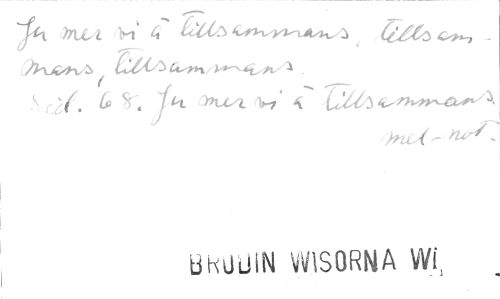 Ju mer vi ä tillsammans, tillsam-
mans, tillsammans.
Sid. 68. Ju mer vi ä tillsammans
mel-not.
BRODIN WISORNA WI,